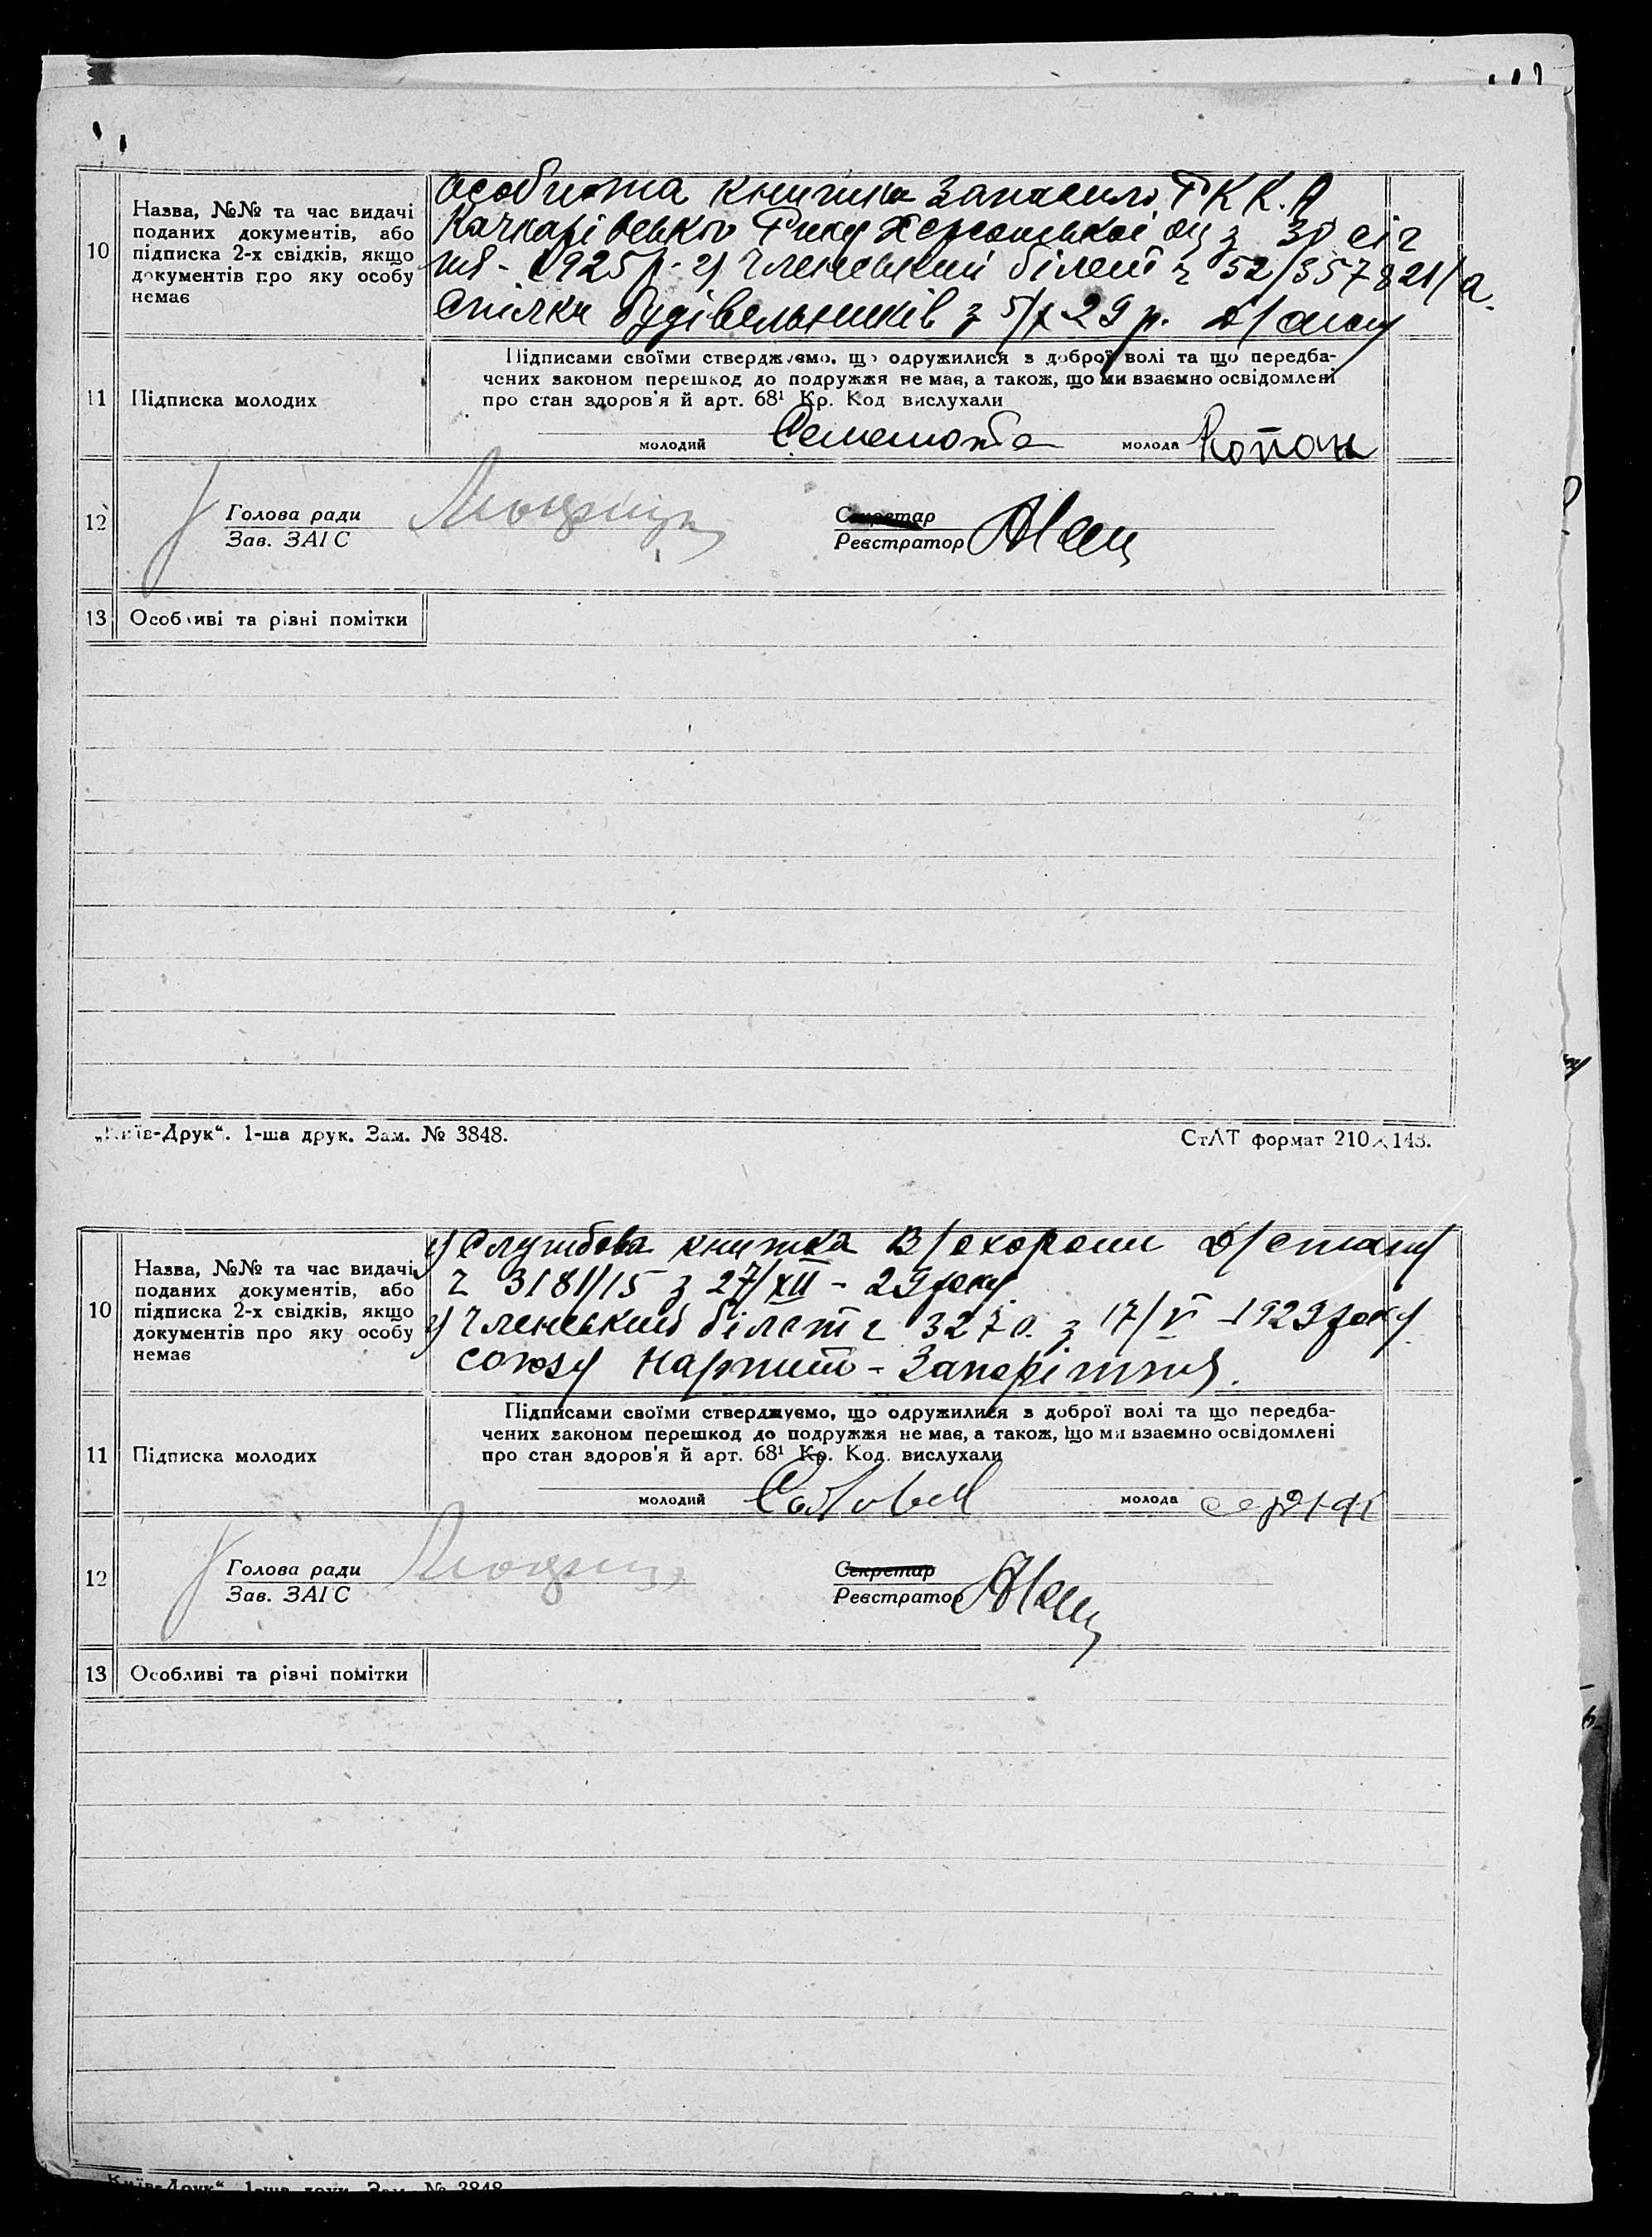 10
Назва, №№ та час видачі
поданих документів, або
підписка 2-х свідків, якщо
документів про яку особу
немає
особиста книжка РККА
Качкарівського Рику Херсонської ок з 30 січ
ня - 1925 р. 2) Членський білет ч 52/357821/а.
Спілки будівельників з 5/X 29 р.
11
Підписка молодих
Підписами своїми стверджуємо, що одружилися з доброї волі та що передба-
чених законом перешкод до подружжя не має, а також, що ми взаємно освідомлені
про стан здоров'я й арт. 68¹ Кр. Код вислухали
молодий
молода Копан
12
Голова ради
Зав. ЗАГС
Секретар
Реєстратор
13 Особливі та різні помітки
„Київ-Друк“. 1-ша друк. Зам. № 3848.
СтАТ формат 210×148.
10
Назва, №№ та час видачі
поданих документів, або
підписка 2-х свідків, якщо
документів про яку особу
немає
1) Службова книжка В/охорони Д/стану
ч 3181/15 з 27/XII - 29 року.
2) Членський білет ч 3270. з 17/V - 1929 року
союзу Нарпит - Запоріжжя.
11
Підписка молодих
Підписами своїми стверджуємо, що одружилися з доброї волі та що передба-
чених законом перешкод до подружжя не має, а також, що ми взаємно освідомлені
про стан здоров'я й арт. 68¹ Кр. Код. вислухали
молодий
молода
12
Голова ради
Зав. ЗАГС
Секретар
Реєстратор
13 Особливі та різні помітки
Київ-Друк“ 1-ша друк. Зам. № 3848